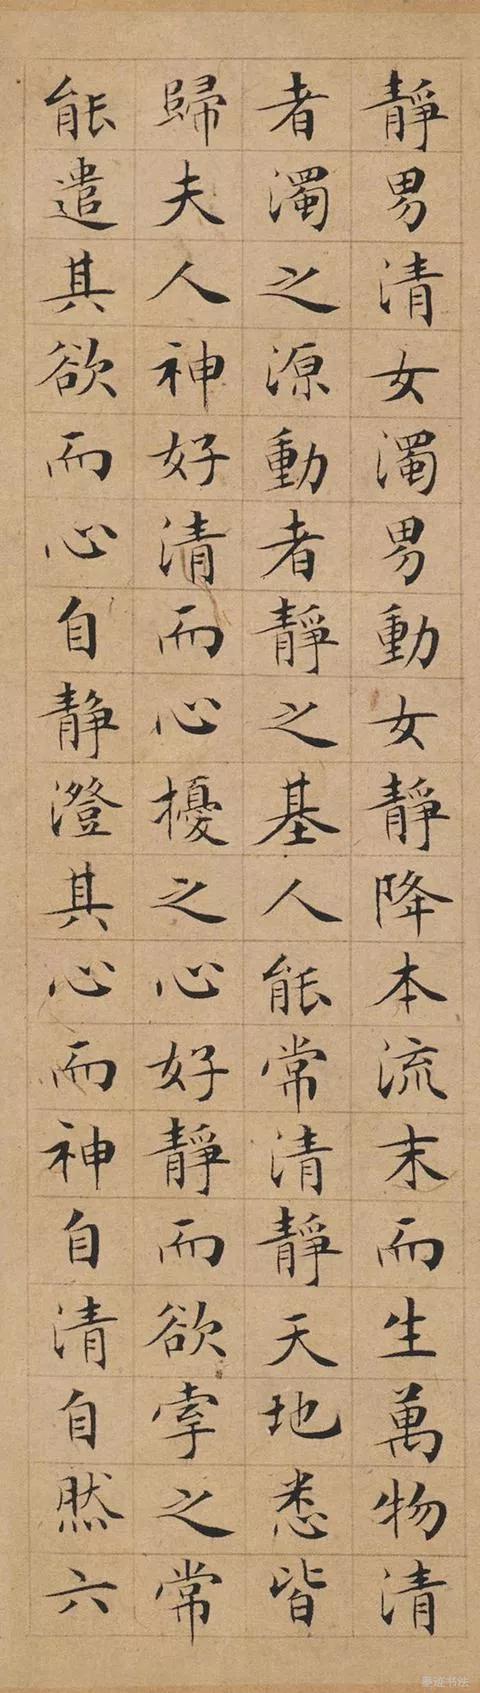 靜男清女濁男動女靜降本流末而生萬物清
者濁之源動者靜之基人能常清靜天地悉皆
歸夫人神好清而心擾之心好靜而欲牽之常
能遣其欲而心自靜澄其心而神自清自然六
墨迹书法